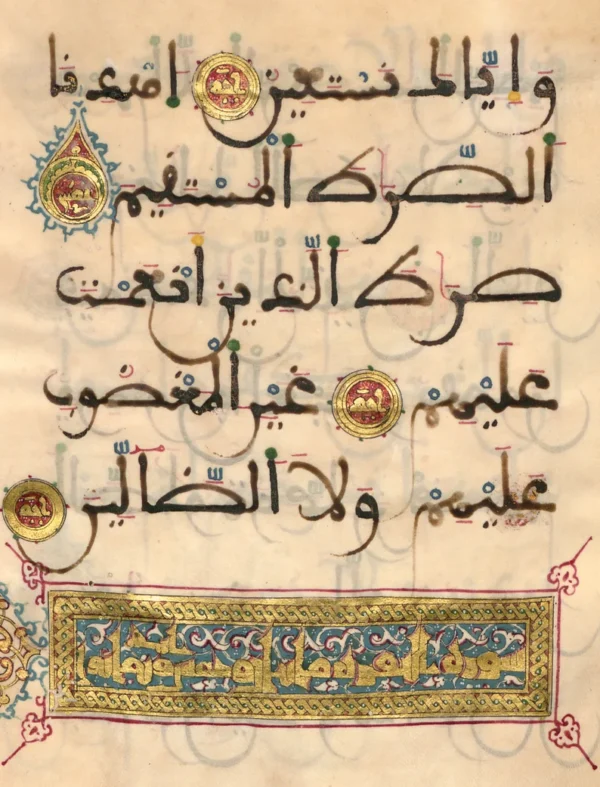 وإياك نستعين اهدنا
الصرٰط المستقيم
صرٰط الذين أنعمت
عليهم غير المغضوب
عليهم ولا الضالين
سورة البقرة مائتان